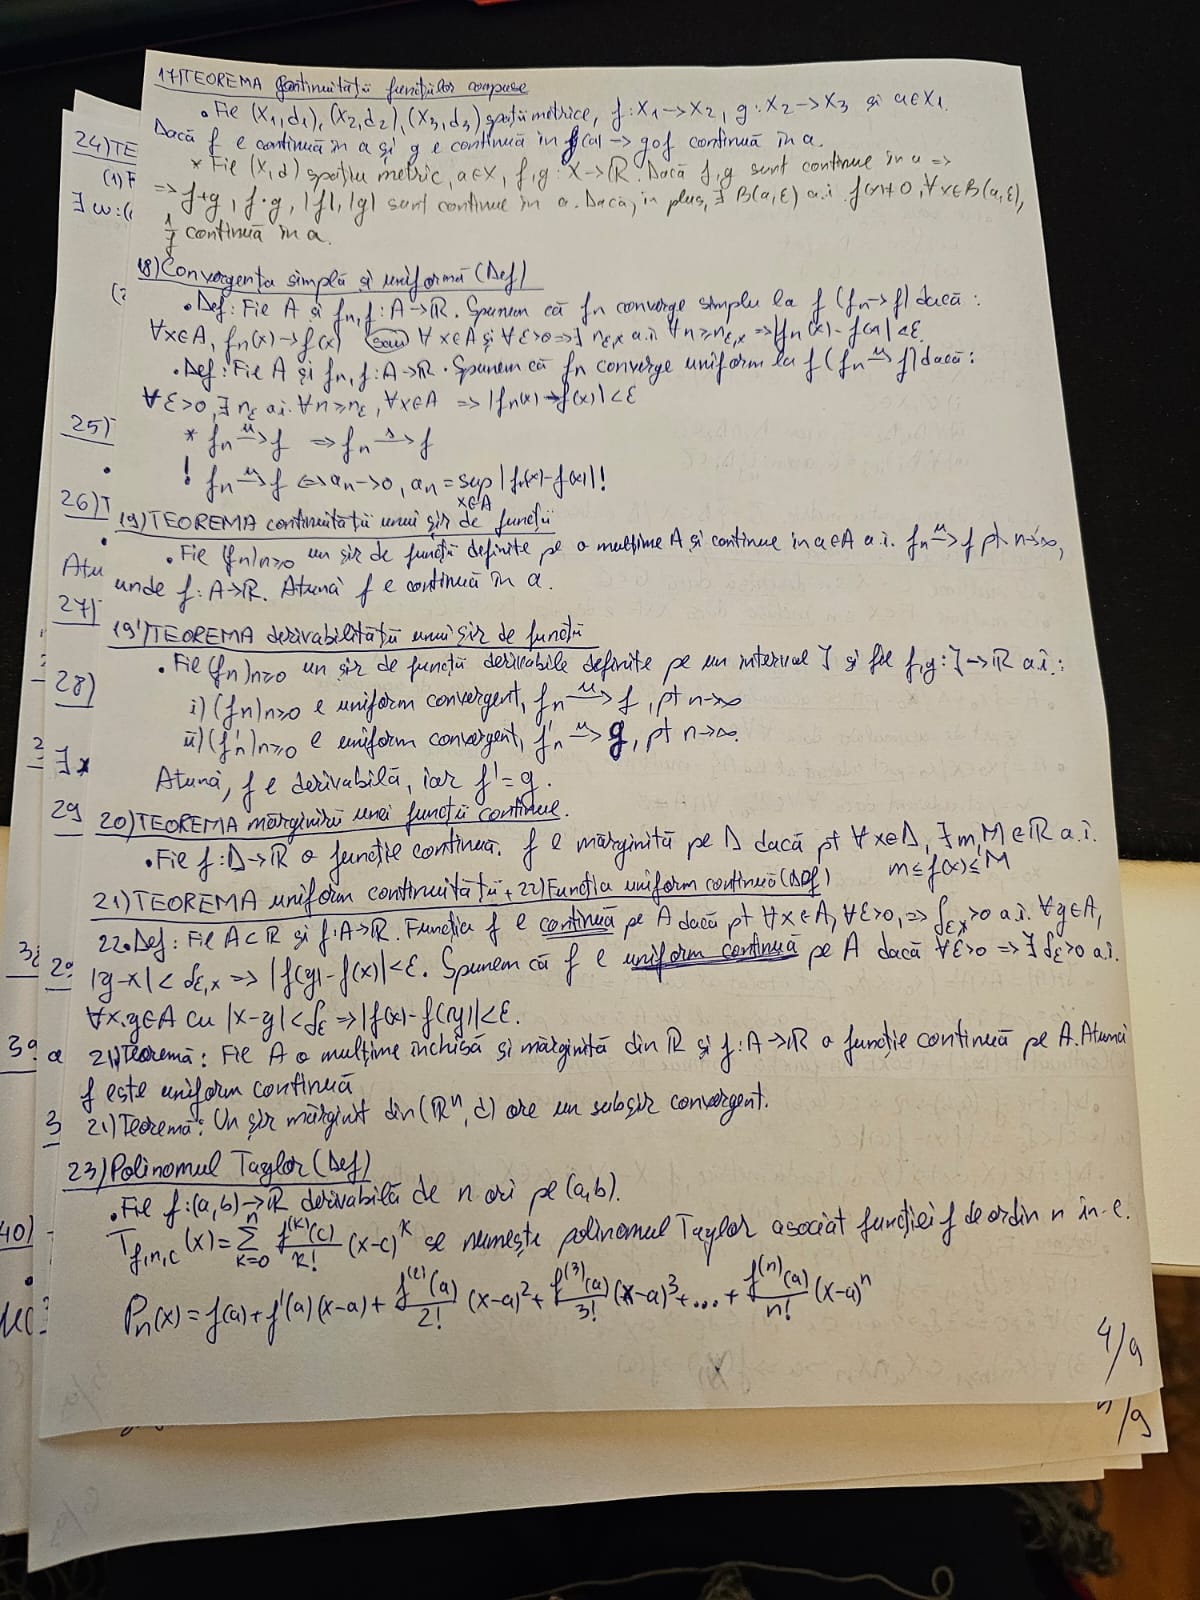 17)TEOREMA continuității funcțiilor compuse
• Fie (X1,d1), (X2,d2), (X3,d3) spații metrice, f: X1→X2, g: X2→X3 și a∈X1.
Dacă f e continuă în a și g e continuă în f(a) → gof continuă în a.
* Fie (X,d) spațiu metric, a∈X, f,g: X→ℝ. Dacă f,g sunt continue în a =>
=> f+g, f·g, |f|, |g| sunt continue în a. Dacă, în plus, ∃ B(a,ε) a.î. f(x)≠0, ∀x∈B(a,ε),
1/f continuă în a.
18)Convergența simplă și uniformă (Def)
• Def: Fie A și fn, f: A→ℝ. Spunem că fn converge simplu la f (fn→f) dacă:
∀x∈A, fn(x)→f(x) sau ∀x∈A și ∀ε>0=>∃ nε,x a.î. ∀n≥nε,x =>|fn(x)-f(x)|<ε.
• Def: Fie A și fn, f: A→ℝ. Spunem că fn converge uniform la f (fn -u-> f) dacă:
∀ε>0, ∃ nε a.î. ∀n≥nε, ∀x∈A => |fn(x)-f(x)|<ε
* fn -u-> f => fn -s-> f
! fn -u-> f <=> an→0, an = sup x∈A |fn(x)-f(x)|!
19)TEOREMA continuității unui șir de funcții
• Fie (fn)n≥0 un șir de funcții definite pe o mulțime A și continue în a∈A a.î. fn -u-> f pt n→∞,
unde f: A→ℝ. Atunci f e continuă în a.
19')TEOREMA derivabilității unui șir de funcții
• Fie (fn)n≥0 un șir de funcții derivabile definite pe un interval J și fie f,g: J→ℝ a.î.:
i) (fn)n≥0 e uniform convergent, fn -u-> f, pt n→∞
ii) (f'n)n≥0 e uniform convergent, f'n -u-> g, pt n→∞.
Atunci, f e derivabilă, iar f'=g.
20)TEOREMA mărginirii unei funcții continue.
• Fie f: D→ℝ o funcție continuă. f e mărginită pe D dacă pt ∀x∈D, ∃ m,M∈ℝ a.î.
m≤f(x)≤M
21)TEOREMA uniform continuității + 22)Funcția uniform continuă(Def)
22.Def: Fie A⊂ℝ și f: A→ℝ. Funcția f e continuă pe A dacă pt ∀x∈A, ∀ε>0, => δε,x>0 a.î. ∀y∈A,
|y-x|<δε,x => |f(y)-f(x)|<ε. Spunem că f e uniform continuă pe A dacă ∀ε>0 => ∃ δε>0 a.î.
∀x,y∈A cu |x-y|<δε => |f(x)-f(y)|<ε.
21)Teoremă: Fie A o mulțime închisă și mărginită din ℝ și f: A→ℝ o funcție continuă pe A. Atunci
f este uniform continuă
21)Teoremă: Un șir mărginit din (ℝⁿ, d) are un subșir convergent.
23)Polinomul Taylor (Def)
• Fie f: (a,b)→ℝ derivabilă de n ori pe (a,b).
T f,n,c (x) = Σ k=0 n f^(k)(c)/k! (x-c)^k se numește polinomul Taylor asociat funcției f de ordin n în c.
Pn(x) = f(a)+f'(a)(x-a)+ f^(2)(a)/2! (x-a)² + f^(3)(a)/3! (x-a)³+...+ f^(n)(a)/n! (x-a)^n
4/9
24)TE
(1) F
25)
26)T
Atu
27)
28)
29
40)
/9